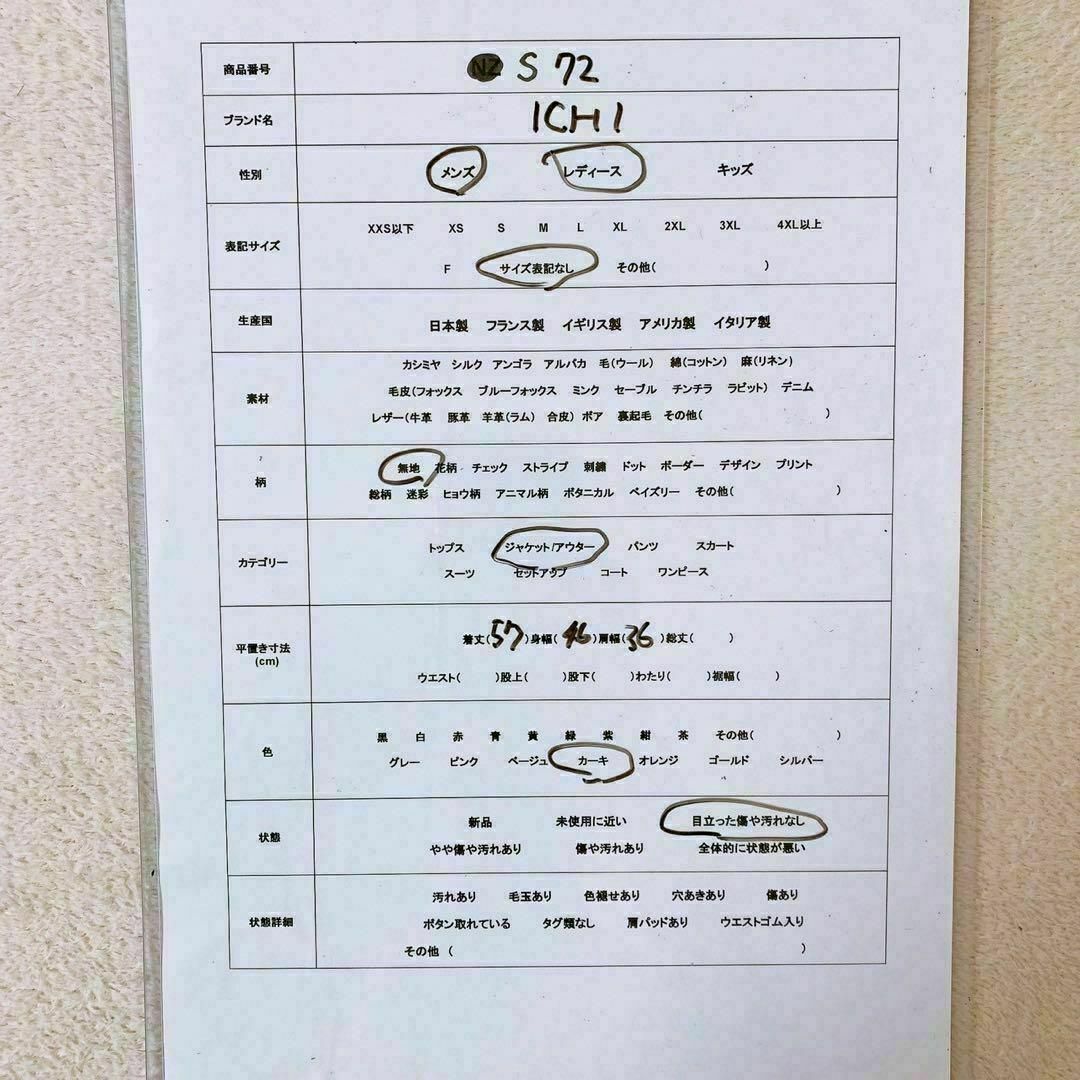 商品番号 NZ S 72
ブランド名 ICHI
性別 メンズ レディース キッズ
XXS以下 XS S M L XL 2XL 3XL 4XL以上
表記サイズ
F サイズ表記なし その他( )
生産国 日本製 フランス製 イギリス製 アメリカ製 イタリア製
カシミヤ シルク アンゴラ アルパカ 毛(ウール) 綿(コットン) 麻(リネン)
素材 毛皮(フォックス ブルーフォックス ミンク セーブル チンチラ ラビット) デニム
レザー(牛革 豚革 羊革(ラム) 合皮) ボア 裏起毛 その他( )
無地 花柄 チェック ストライプ 刺繍 ドット ボーダー デザイン プリント
柄
総柄 迷彩 ヒョウ柄 アニマル柄 ボタニカル ペイズリー その他( )
トップス ジャケット/アウター パンツ スカート
カテゴリー
スーツ セットアップ コート ワンピース
着丈(57)身幅(46)肩幅(36)総丈( )
平置き寸法
(cm)
ウエスト( )股上( )股下( )わたり( )裾幅( )
黒 白 赤 青 黄 緑 紫 紺 茶 その他( )
色
グレー ピンク ベージュ カーキ オレンジ ゴールド シルバー
新品 未使用に近い 目立った傷や汚れなし
状態
やや傷や汚れあり 傷や汚れあり 全体的に状態が悪い
汚れあり 毛玉あり 色褪せあり 穴あきあり 傷あり
状態詳細 ボタン取れている タグ類なし 肩パッドあり ウエストゴム入り
その他 ( )